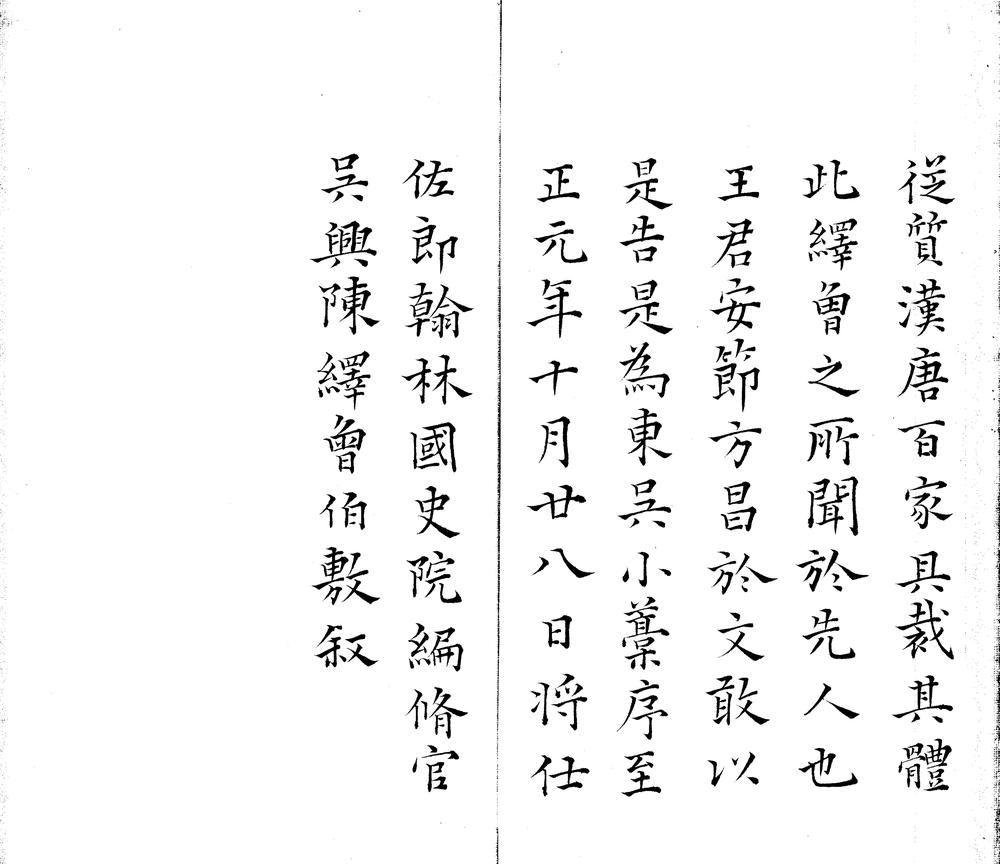 從質漢唐百家具裁其體
此繹曾之所聞於先人也
王君安節方昌於文敢以
是告是為東吳小藁序至
正元年十月廿八日将仕
佐郎翰林國史院編脩官
吳興陳繹曾伯敷叙